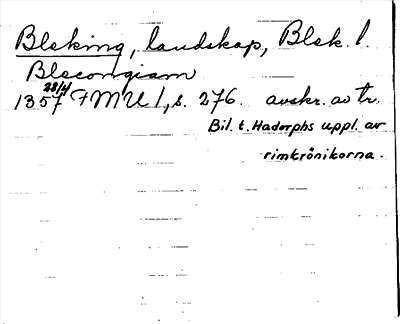 Bleking, landskap, Blek. l.
Blecongiam
1357 28/4 FMU 1, s. 276. avskr. av tr.
Bil. t. Hadorphs uppl. av
rimkrönikorna.